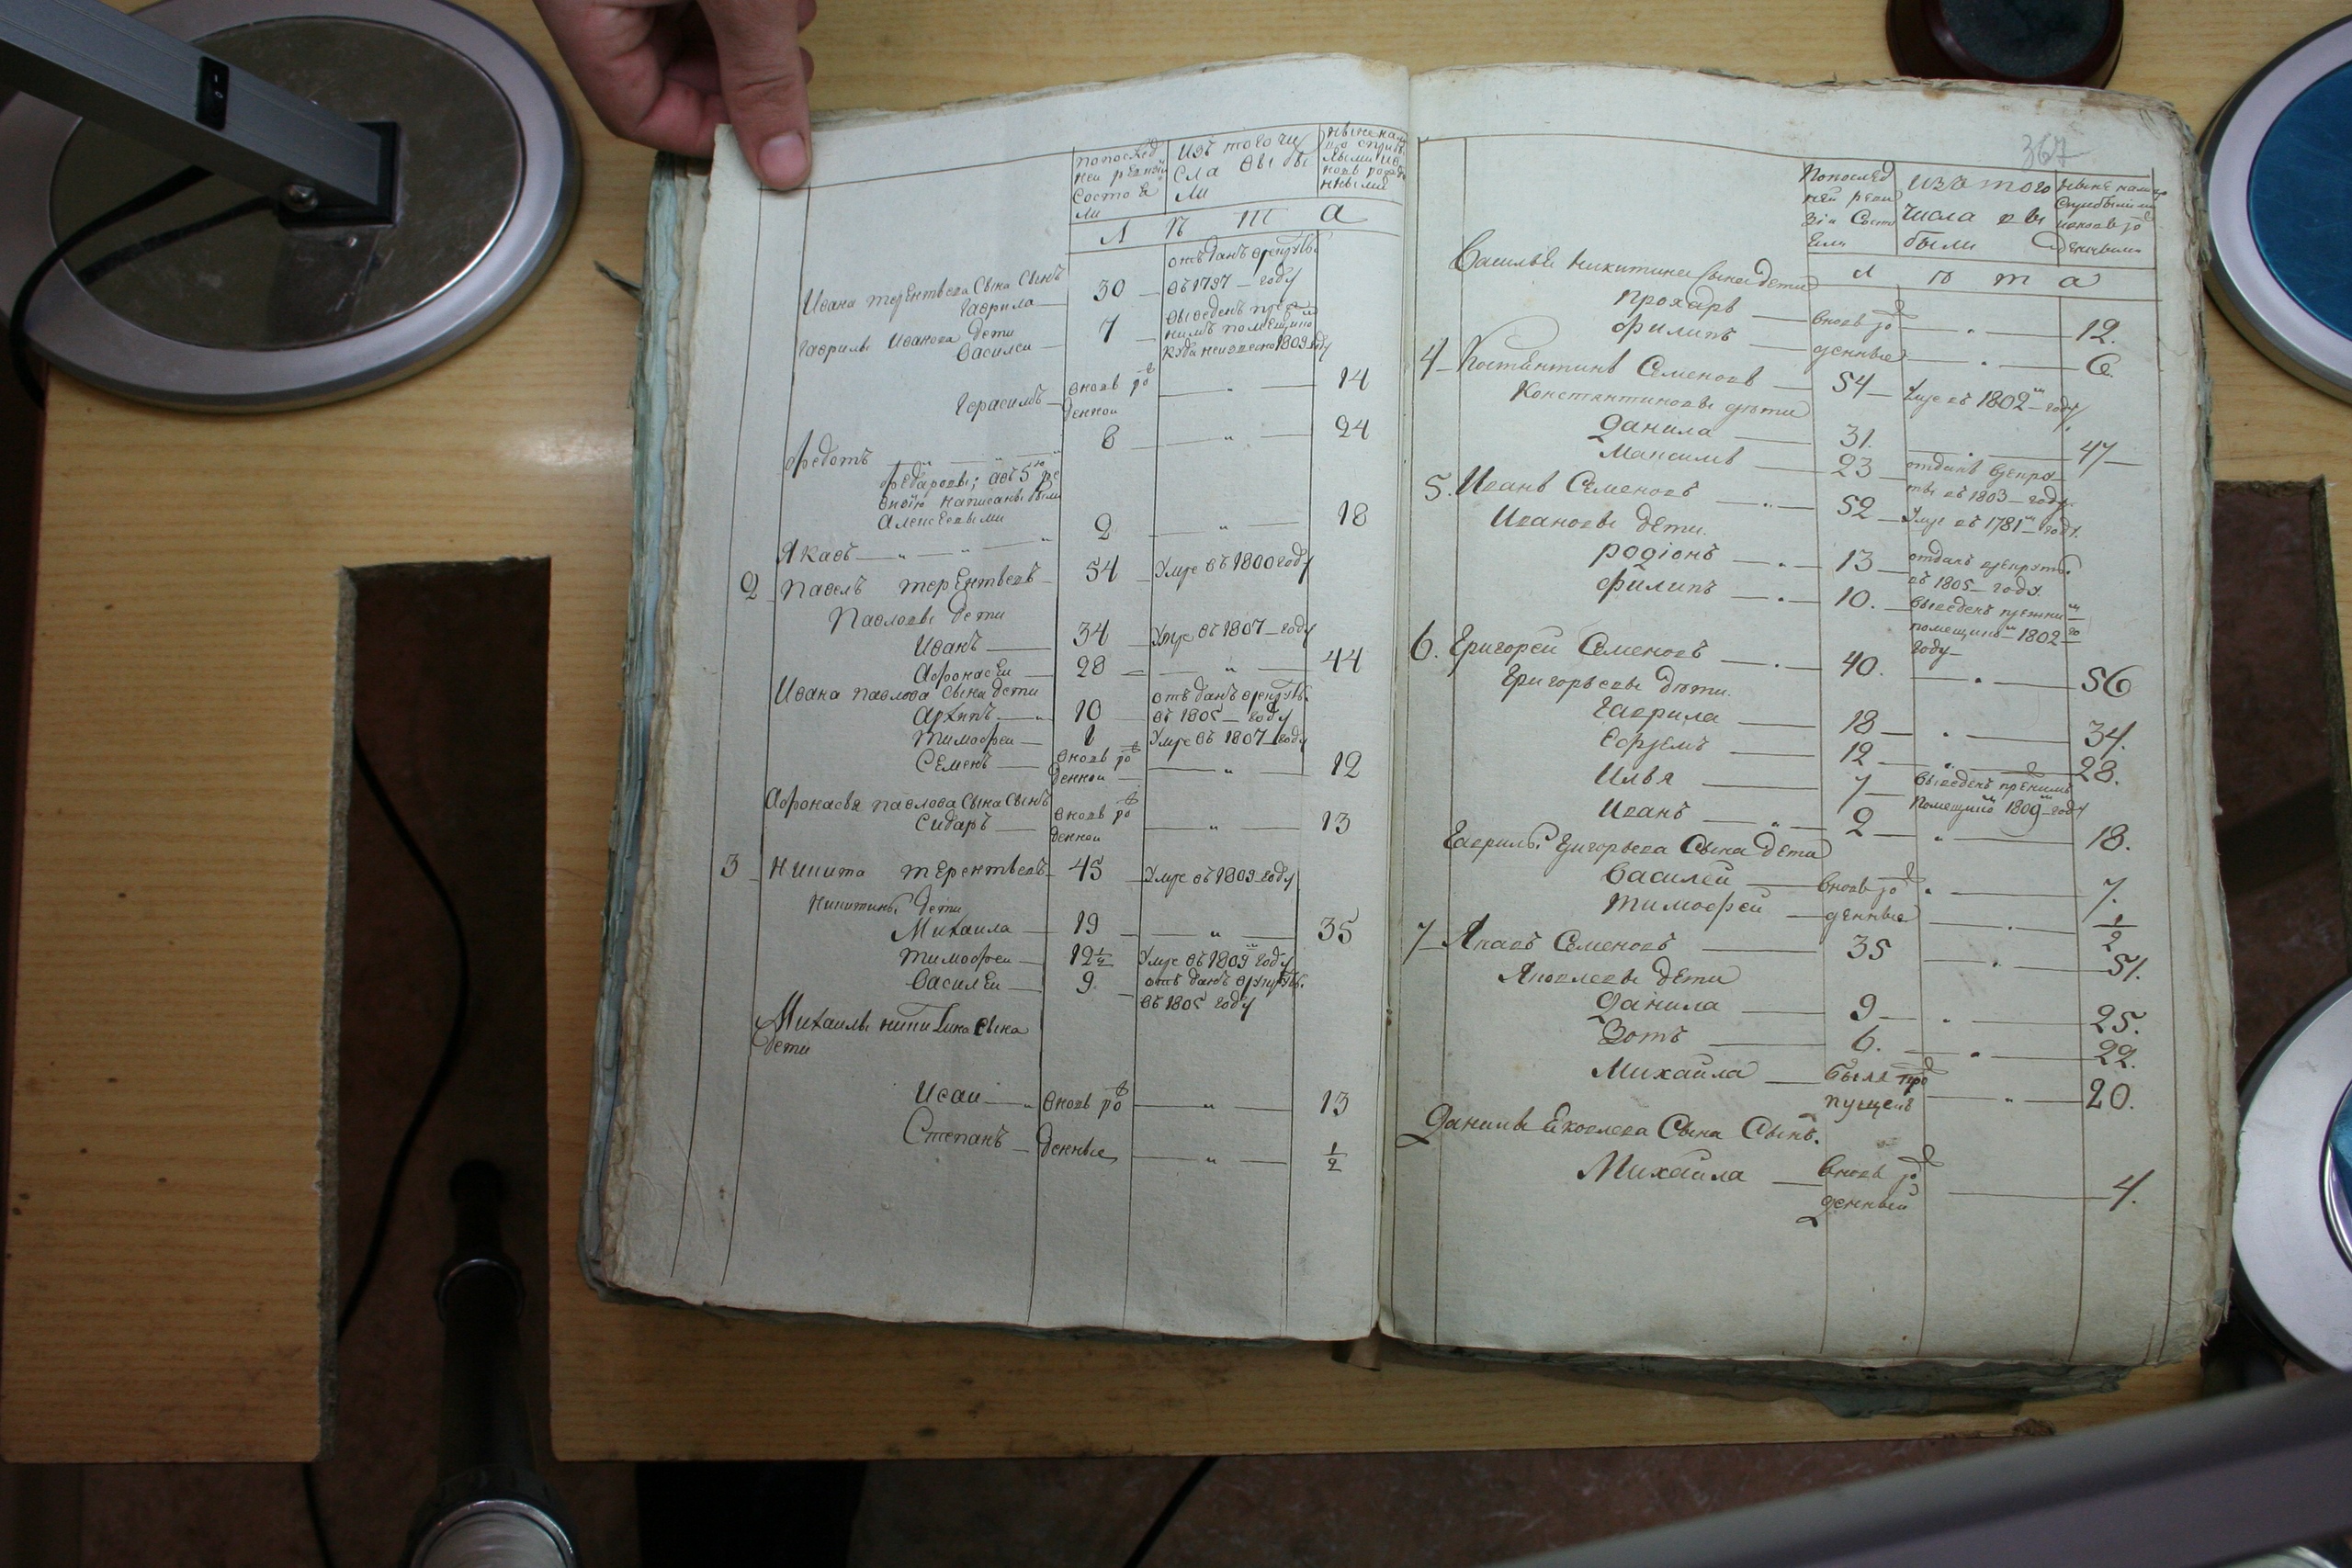 попослед
ней ревизiи
состоя
ли
изъ того чи
сла выбы
ли
ныне налицо
со прибы
лыми и в
новь рожде
нными
Л Ѣ Т А
Ивана терентьева сына сынъ
Гаврила 30 отъ данъ врекруты
въ 1797 году
Гаврилы Иванова дети
Василеи 7 выведенъ преж
нимъ помещико
куда неизвесно 1809 году
Герасимъ вновь рож
денной 14
Федотъ 8 24
Федаровы; а въ 5ю ре
визiю написаны были
Алексеевыми
Якавъ 2 18
2 Павелъ терентьевъ 54 Умре въ 1800 году
Павловы дети
Иванъ 34 Умре въ 1807 году
Афонасеи 28 44
Ивана павлова сына дети
Архипъ 10 отъ данъ врекруты
въ 1805 году
тимофеи 1 Умре въ 1807 году
Семенъ вновь рож
денной 12
Афонасья павлова сына сынъ
Сидаръ вновь рож
денной 13
3 Никита терентьевъ 45 Умре въ 1809 году
Никитины дети
Михаила 19 35
тимофеи 12½ Умре въ 1809 году
Василеи 9. отъ данъ врекруты
въ 1805 году
Михаилы никитина сына
дети
Исаи вновь рож 13
Степанъ денные ½
367
Попослед
ней реви
зiи Состо
яли
изъ того
числа вы
были
ныне налицо
Сприбылыми
ивновь рож
денными
Л Ѣ т а
Василья никитина Сына дети
Прохаръ вновь рож 12.
Филипъ денные 6.
4 Костентинъ Семеновъ 54 Умре въ 1802м году
Константиновы дѣти
Данила 31. 47
Максимъ 23 отданъ врекру
ты въ 1803 году.
5. Иванъ Семеновъ 52 Умре въ 1781м году.
Ивановы дети.
родiонъ 13 отданъ врекруты
въ 1805 году.
Филипъ 10. Выведенъ прежни
помещико 1802 го
году
6. Григорей Семеновъ 40. 56
Григорьевы дѣти.
Гаврила 18 34.
Ефремъ 12 28.
Илья 7 Выведенъ прежнимъ
помещико 1809 году
Иванъ 2 18.
Гаврилы Григорьева Сына дети
Василей вновь рож 7.
Тимофей денные ½
7 Якавъ Семеновъ 35 51.
Яковлевы дети
Данила 9 25.
Зотъ 6. 22.
Михайла былъ про
пущенъ 20.
Данилы Яковлева Сына Сынъ.
Михайла вновь рож
денный 4.